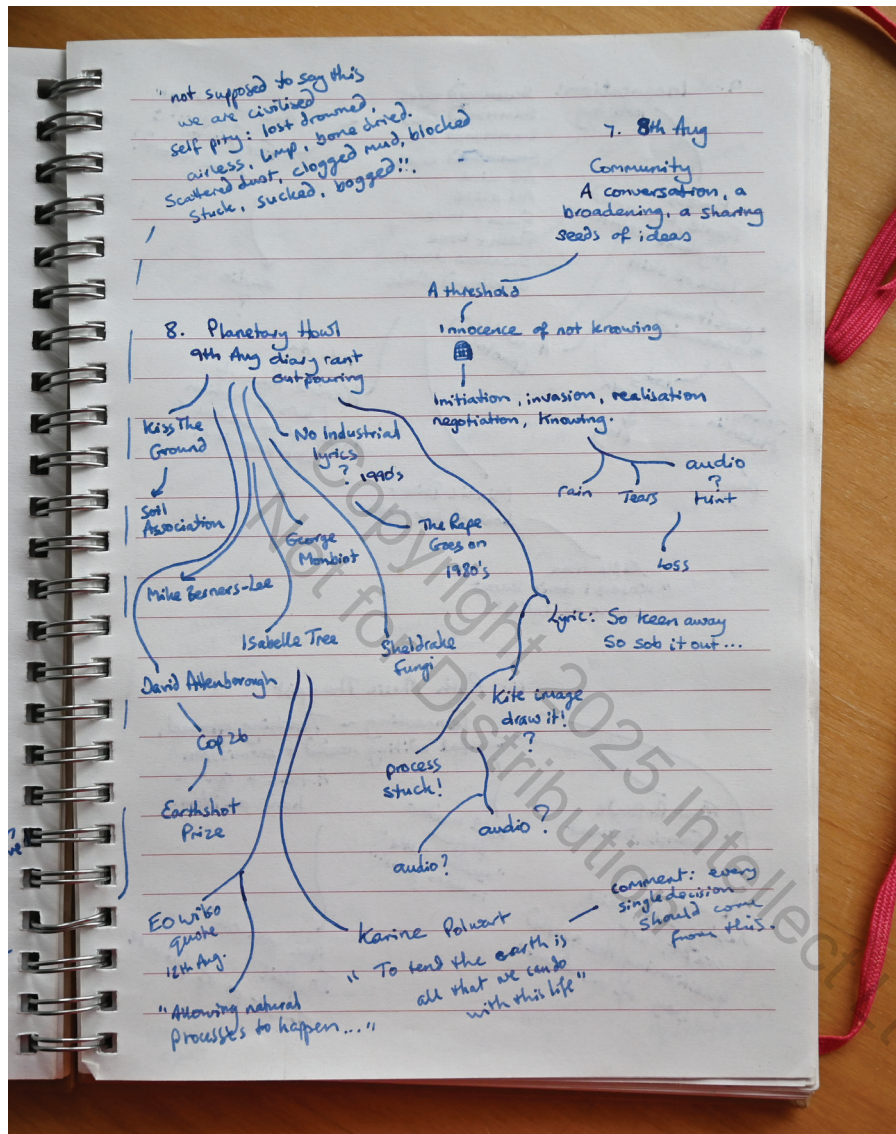 " not supposed to say this
we are civilised
self pity: lost drowned,
airless, limp, bone dried.
Scattered dust, clogged mud, blocked
stuck, sucked, bogged!!.
7. 8th Aug
Community
A conversation, a
broadening, a sharing
seeds of ideas
A threshold
Innocence of not knowing
Initiation, invasion, realisation
negotiation, knowing.
rain
Tears
audio
?
hint
Loss
8. Planetary Howl
9th Aug diary rant
outpouring
Kiss The
Ground
Soil
Association
No Industrial
Lyrics
? 1990's
The Rape
Goes on
1980's
George
Monbiot
Mike Berners-Lee
Isabelle Tree
Sheldrake
Fungi
David Attenborough
Cop26
Earthshot
Prize
Lyric: So keen away
So sob it out...
Kite image
draw it!
?
process
stuck!
audio?
audio?
EO Wilso
quote
12th Aug.
"Allowing natural
Processes to happen..."
Karine Polwart
"To tend the earth is
all that we can do
with this life"
comment: every
single decision
should come
from this.
Copyright 2025 Intellect
Not for Distribution